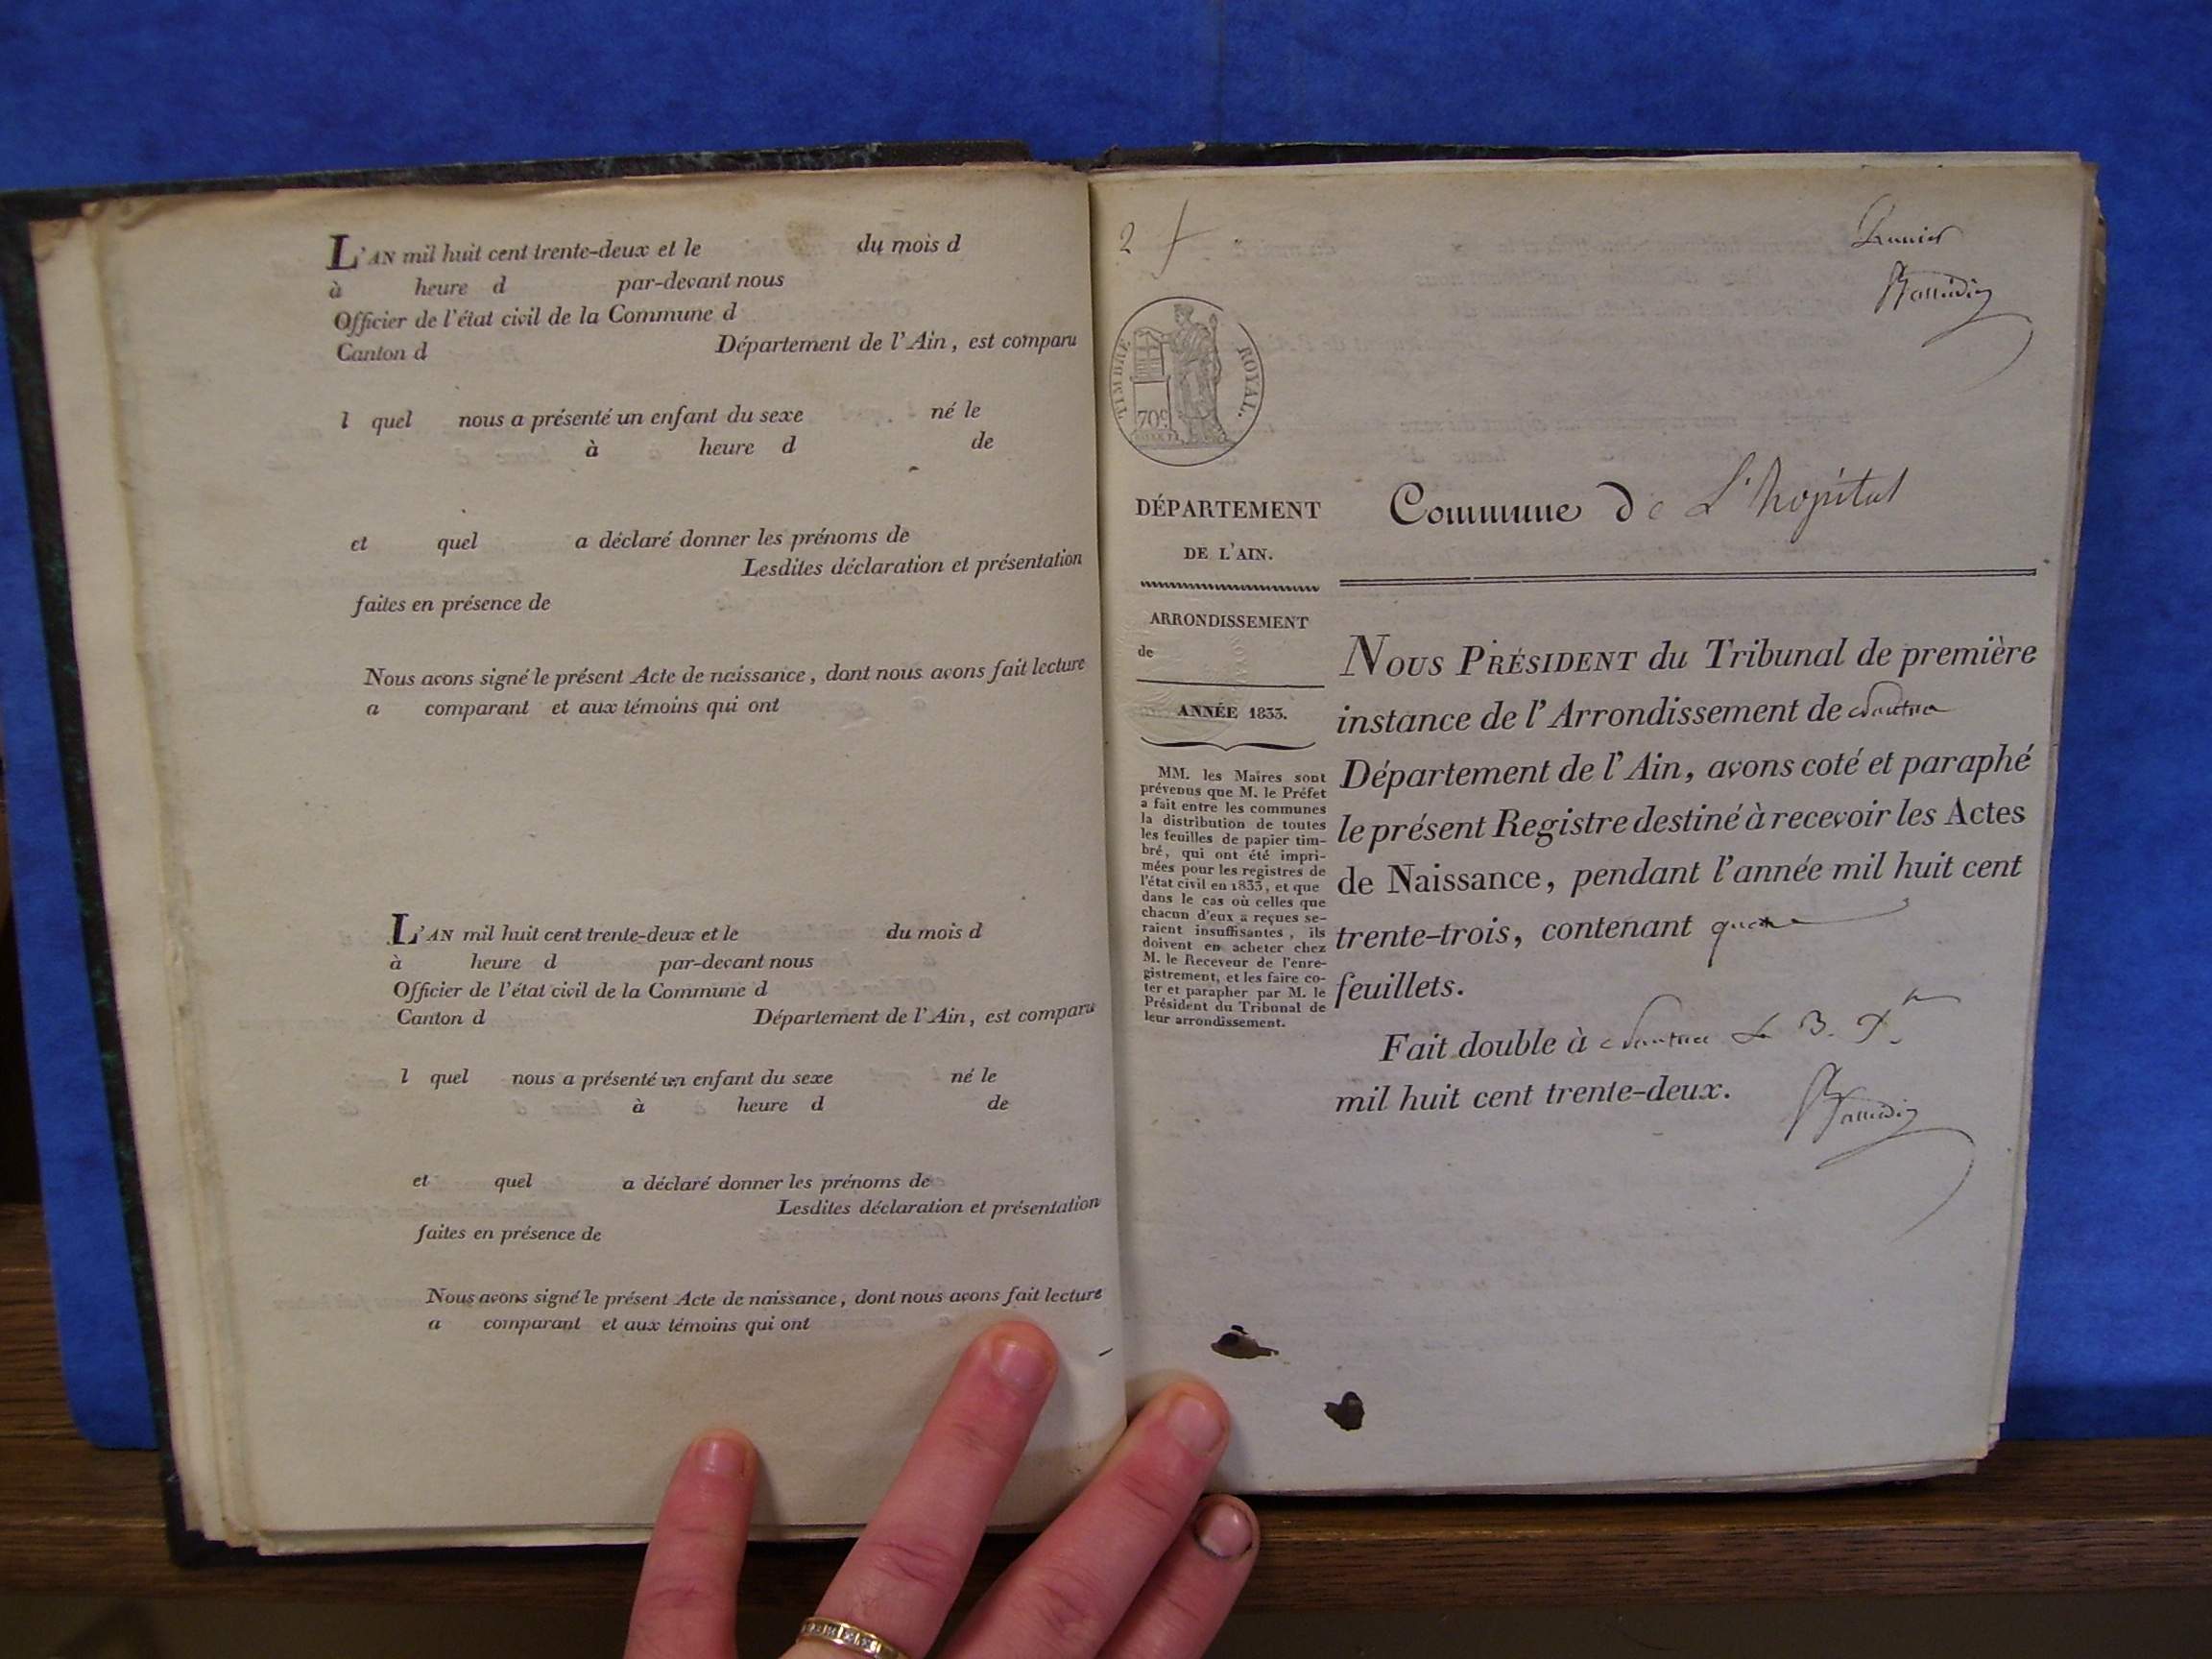 L'AN mil huit cent trente-deux et le du mois d
à heure d par-devant nous
Officier de l'état civil de la Commune d
Canton d Département de l'Ain, est comparu
l quel nous a présenté un enfant du sexe né le
à heure d de
et quel a déclaré donner les prénoms de
Lesdites déclaration et présentation
faites en présence de
Nous avons signé le présent Acte de naissance, dont nous avons fait lecture
a comparant et aux témoins qui ont
L'AN mil huit cent trente-deux et le du mois d
à heure d par-devant nous
Officier de l'état civil de la Commune d
Canton d Département de l'Ain, est comparu
l quel nous a présenté un enfant du sexe né le
à heure d de
et quel a déclaré donner les prénoms de
Lesdites déclaration et présentation
faites en présence de
Nous avons signé le présent Acte de naissance, dont nous avons fait lecture
a comparant et aux témoins qui ont
2
TIMBRE ROYAL.
70c
DÉPARTEMENT
DE L'AIN.
ARRONDISSEMENT
de
ANNÉE 1833.
MM. les Maires sont
prévenus que M. le Préfet
a fait entre les communes
la distribution de toutes
les feuilles de papier tim-
bré, qui ont été impri-
mées pour les registres de
l'état civil en 1833, et que
dans le cas où celles que
chacun d'eux a reçues se-
raient insuffisantes, ils
doivent en acheter chez
M. le Receveur de l'enre-
gistrement, et les faire co-
ter et parapher par M. le
Président du Tribunal de
leur arrondissement.
Commune de L'hopital
NOUS PRÉSIDENT du Tribunal de première
instance de l'Arrondissement de Nantua
Département de l'Ain, avons coté et paraphé
le présent Registre destiné à recevoir les Actes
de Naissance, pendant l'année mil huit cent
trente-trois, contenant quatre
feuillets.
Fait double à Nantua le 3.
mil huit cent trente-deux.